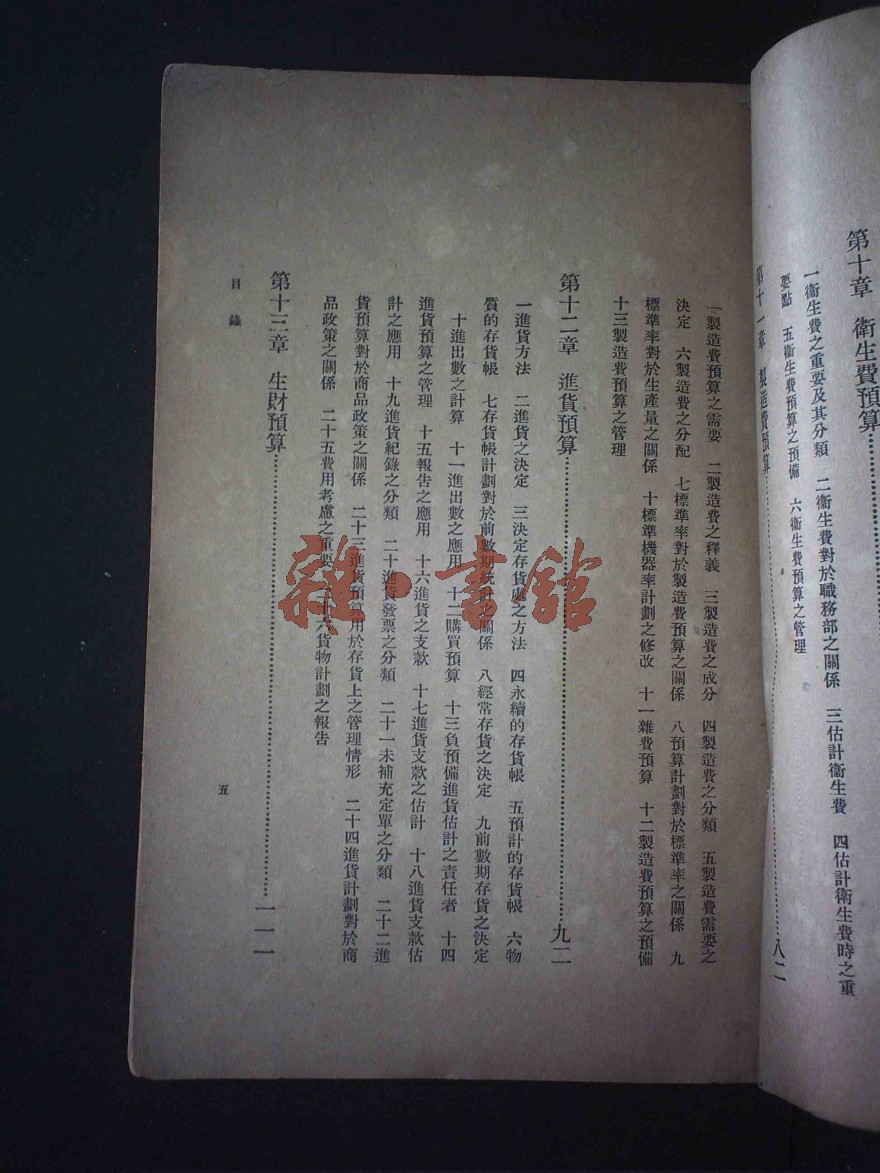 第十章　衛生費預算
一衛生費之重要及其分類　二衛生費對於職務部之關係　三估計衛生費　四估計衛生費時之重
要點　五衛生費預算之預備　六衛生費預算之管理
第十一章　製造費預算……八二
一製造費預算之需要　二製造費之釋義　三製造費之成分　四製造費之分類　五製造費需要之
決定　六製造費之分配　七標準率對於製造費預算之關係　八預算計劃對於標準率之關係　九
標準率對於生產量之關係　十標準機器率計劃之修改　十一雜費預算　十二製造費預算之預備
十三製造費預算之管理
第十二章　進貨預算……九二
一進貨方法　二進貨之決定　三決定存貨處之方法　四永續的存貨帳　五預計的存貨帳　六物
質的存貨帳　七存貨帳計劃對於前數期統計之關係　八經常存貨之決定　九前數期存貨之決定
十進出數之計算　十一進出數之應用　十二購買預算　十三負預備進貨估計之責任者　十四
進貨預算之管理　十五報告之應用　十六進貨之支款　十七進貨支款之估計　十八進貨支款估
計之應用　十九進貨紀錄之分類　二十進貨發票之分類　二十一未補充定單之分類　二十二進
貨預算對於商品政策之關係　二十三進貨預算用於存貨上之管理情形　二十四進貨計劃對於商
品政策之關係　二十五費用考慮之重要　十六貨物計劃之報告
第十三章　生財預算……一一一
目錄
五
雜·書館